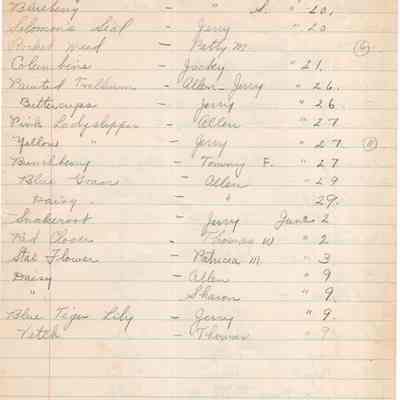 Blueberry - " S. " 20.
Solomon's Seal - Jerry " 20
weed - Patty M. (6)
Columbine - Jacky " 21.
Painted Trillium - Allen - Jerry " 26.
Buttercups - Jerry " 26.
Pink Ladyslipper - Allen " 27
Yellow " - Jerry " 27. (8)
Bunchberry - Tommy F. " 27
Blue Grass - Allen - 29
Daisy. - " 29.
Snakeroot - Jerry June 2
Red Clover - Thomas W " 2
Star Flower - Patricia M. " 3
Daisy - Allen " 9
" Sharon " 9.
Blue Tiger Lily - Jerry " 9.
Vetch - Thomas " 9